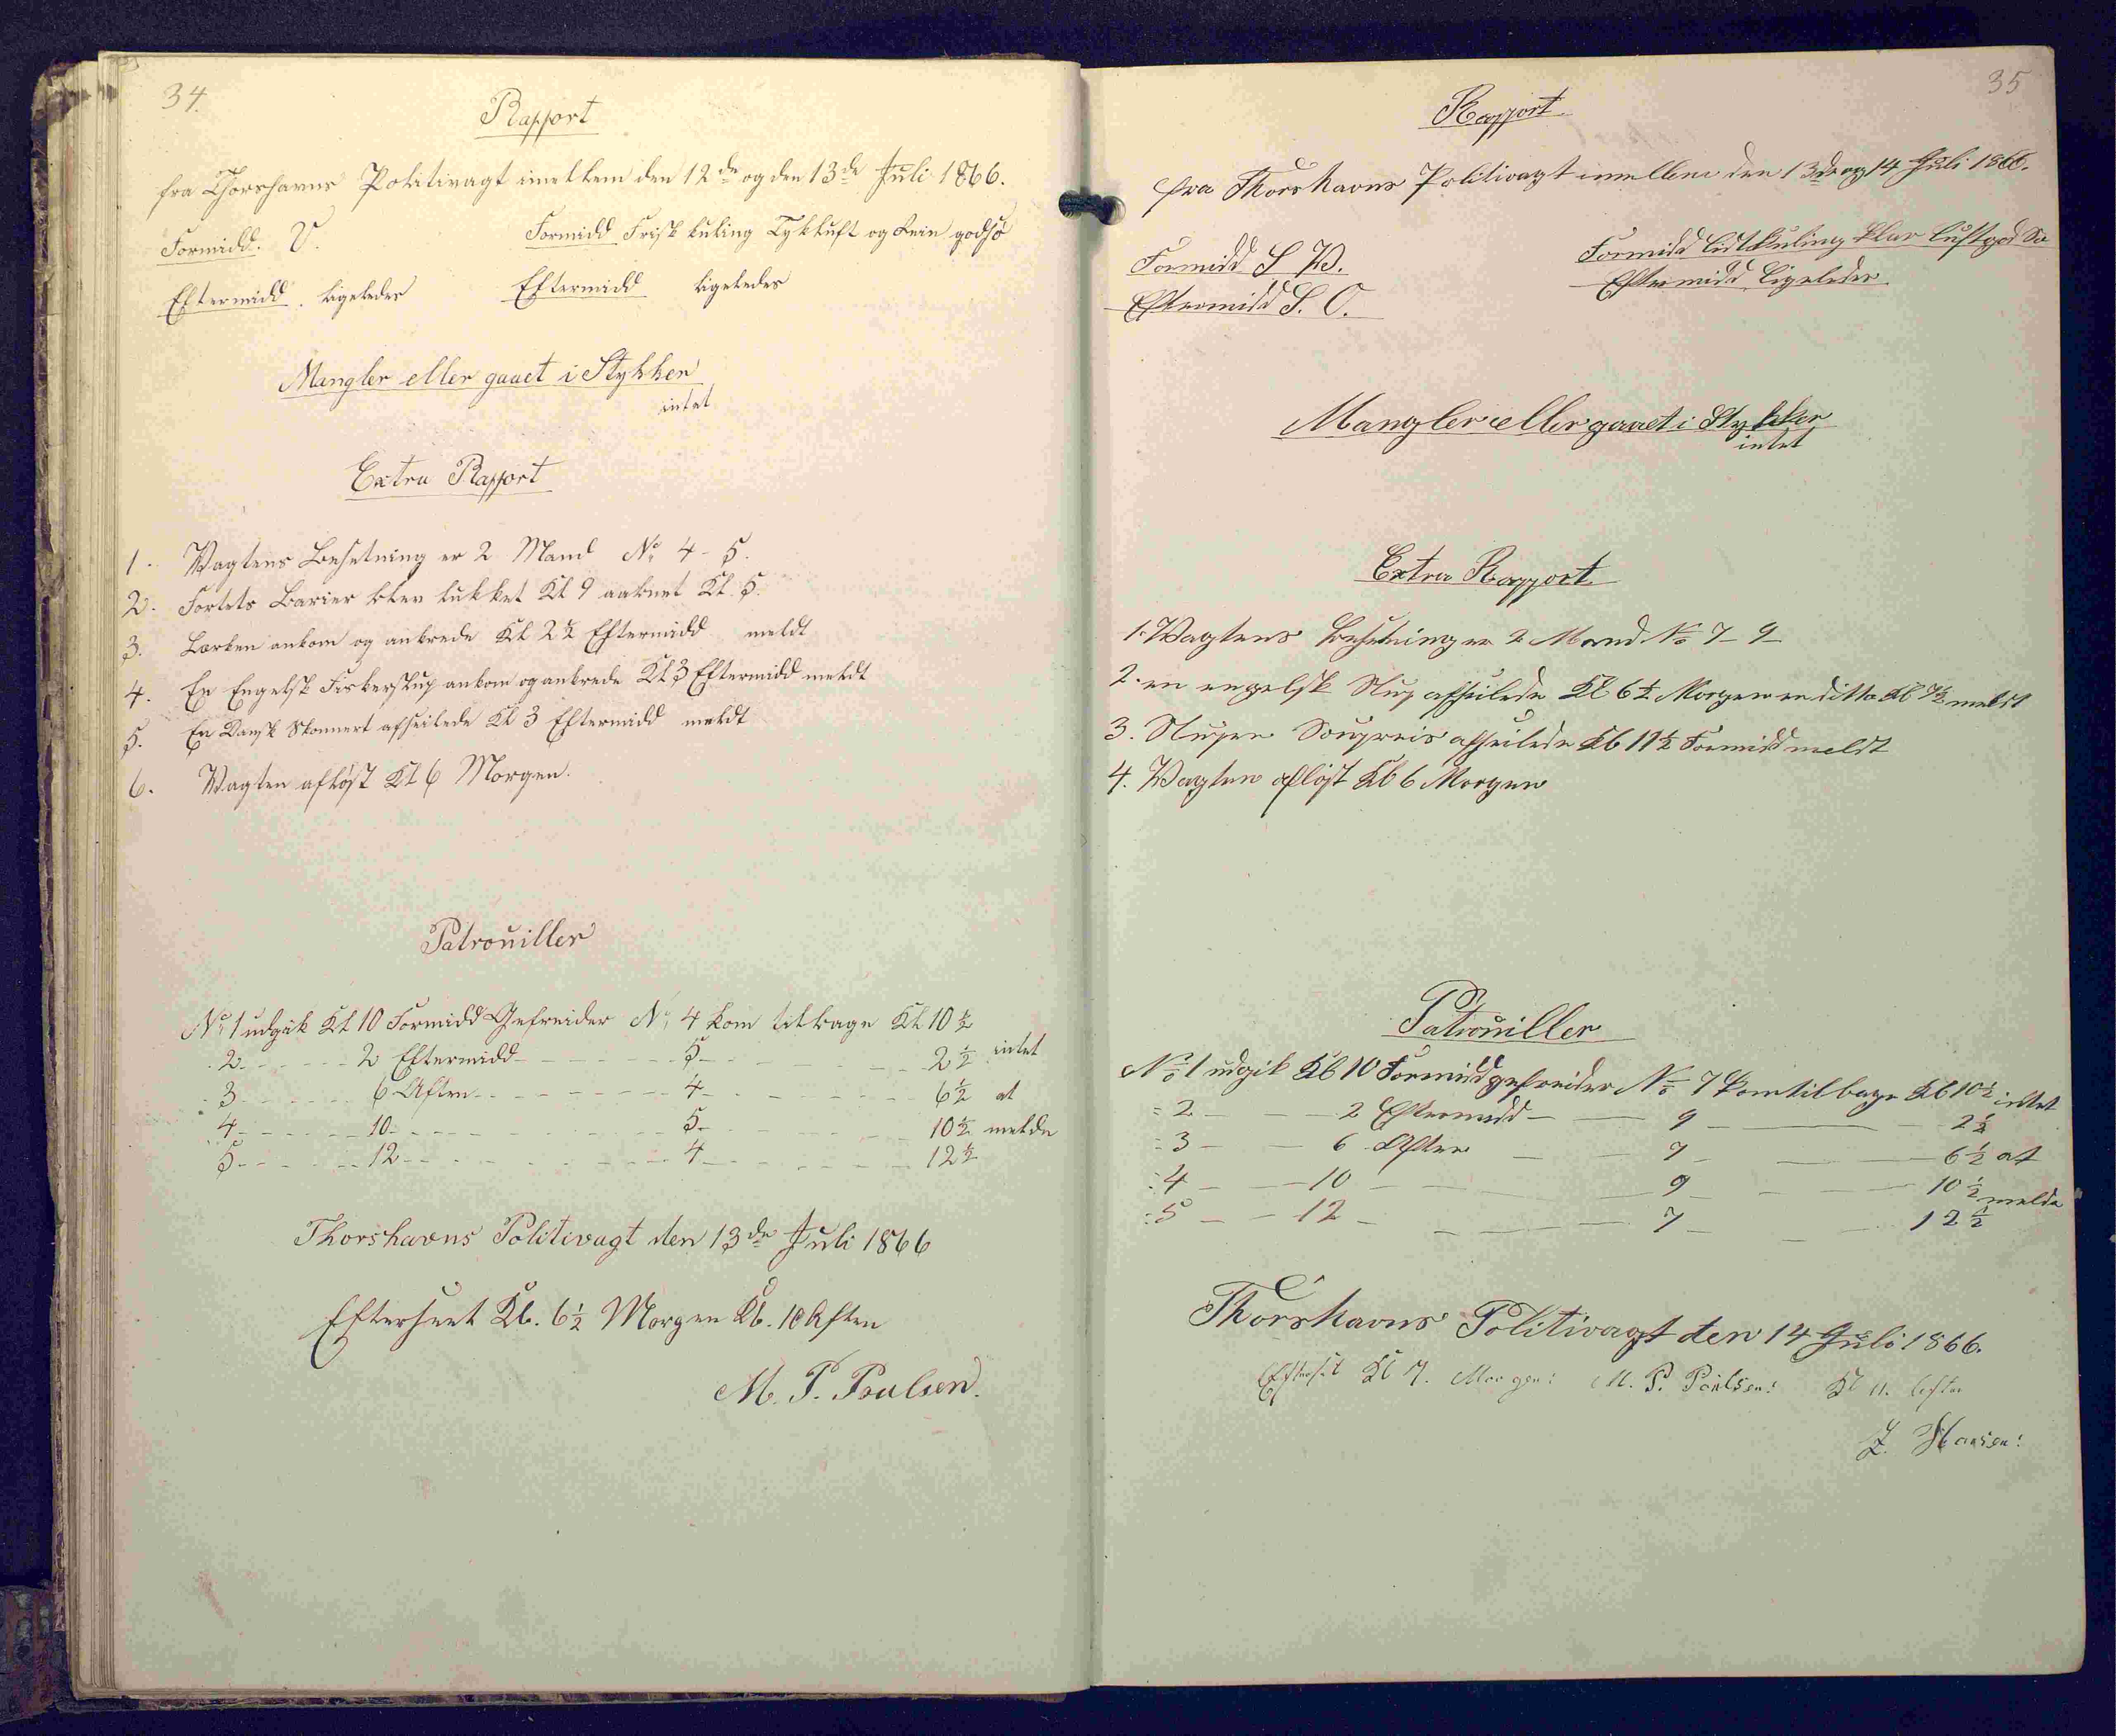 34.
Rapport
fra Thorshavns Politivagt imellem den 12de og den 13de Juli 1866.
Formidd. V. Formidd Frisk kuling Tykluft og Rein god Sø
Eftermidd. ligeledes Eftermidd ligeledes
Mangler eller gaaet i Stykker
intet
Extra Rapport
1. Vagtens Besetning er 2 Mand No 4 - 5.
2. Fortets Barier blev lukket Kl 9 aabnet Kl. 5.
3. Lærken ankom og ankrede Kl 2½ Eftermidd meldt
4. En Engelsk Fiskerslup ankom og ankrede Kl 3 Eftermidd meldt
5. En Dansk Skonnert afseilede Kl 3 Eftermidd meldt
6. Vagten afløst Kl 6 Morgen.
Patrouiller
No 1 udgik Kl 10 Formidd Gefreider No 4 kom tilbage Kl 10½
2 - - - 2 Eftermidd - - - 5 - - - 2½ intet
3 - - - 6 Aften - - - 4 - - - 6½ at
4 - - - 10 - - - 5 - - - 10½ melde
5 - - - 12 - - - 4 - - - 12½
Thorshavns Politivagt den 13de Juli 1866
Efterseet Kl. 6½ Morgen Kl. 10 Aften
M. P. Poulsen.
35
Rapport
fra Thorshavns Politivagt imellem den 13de og 14 Juli 1866.
Formidd S W. Formidd Lidt Kuling klar Luft god Sø
Eftermidd S. O. Eftermidd Ligeledes
Mangler eller gaaet i Stykker
intet
Extra Rapport
1. Vagtens Besetning er 2 Mand No 7 - 9
2. en engelsk Slup afseilede Kl 6½ Morgen en ditto Kl 7½ meldt
3. Slupen afseilede Kl 11½ Formidd meldt
4. Vagten afløst Kl 6 Morgen
Patrouiller
No 1 udgik Kl 10 Formidd gefreider No 7 kom tilbage Kl 10½ intet
2 - - 2 Eftermidd - - 9 - - 2½
3 - - 6 Aften - - 7 - - 6½ at
4 - - 10 - - 9 - - 10½ melde
5 - - 12 - - 7 - - 12½
Thorshavns Politivagt den 14 Juli 1866.
Efterset Kl 7. Morgen: M. P. Poulsen: Kl 11. Aften
J. Hansen: